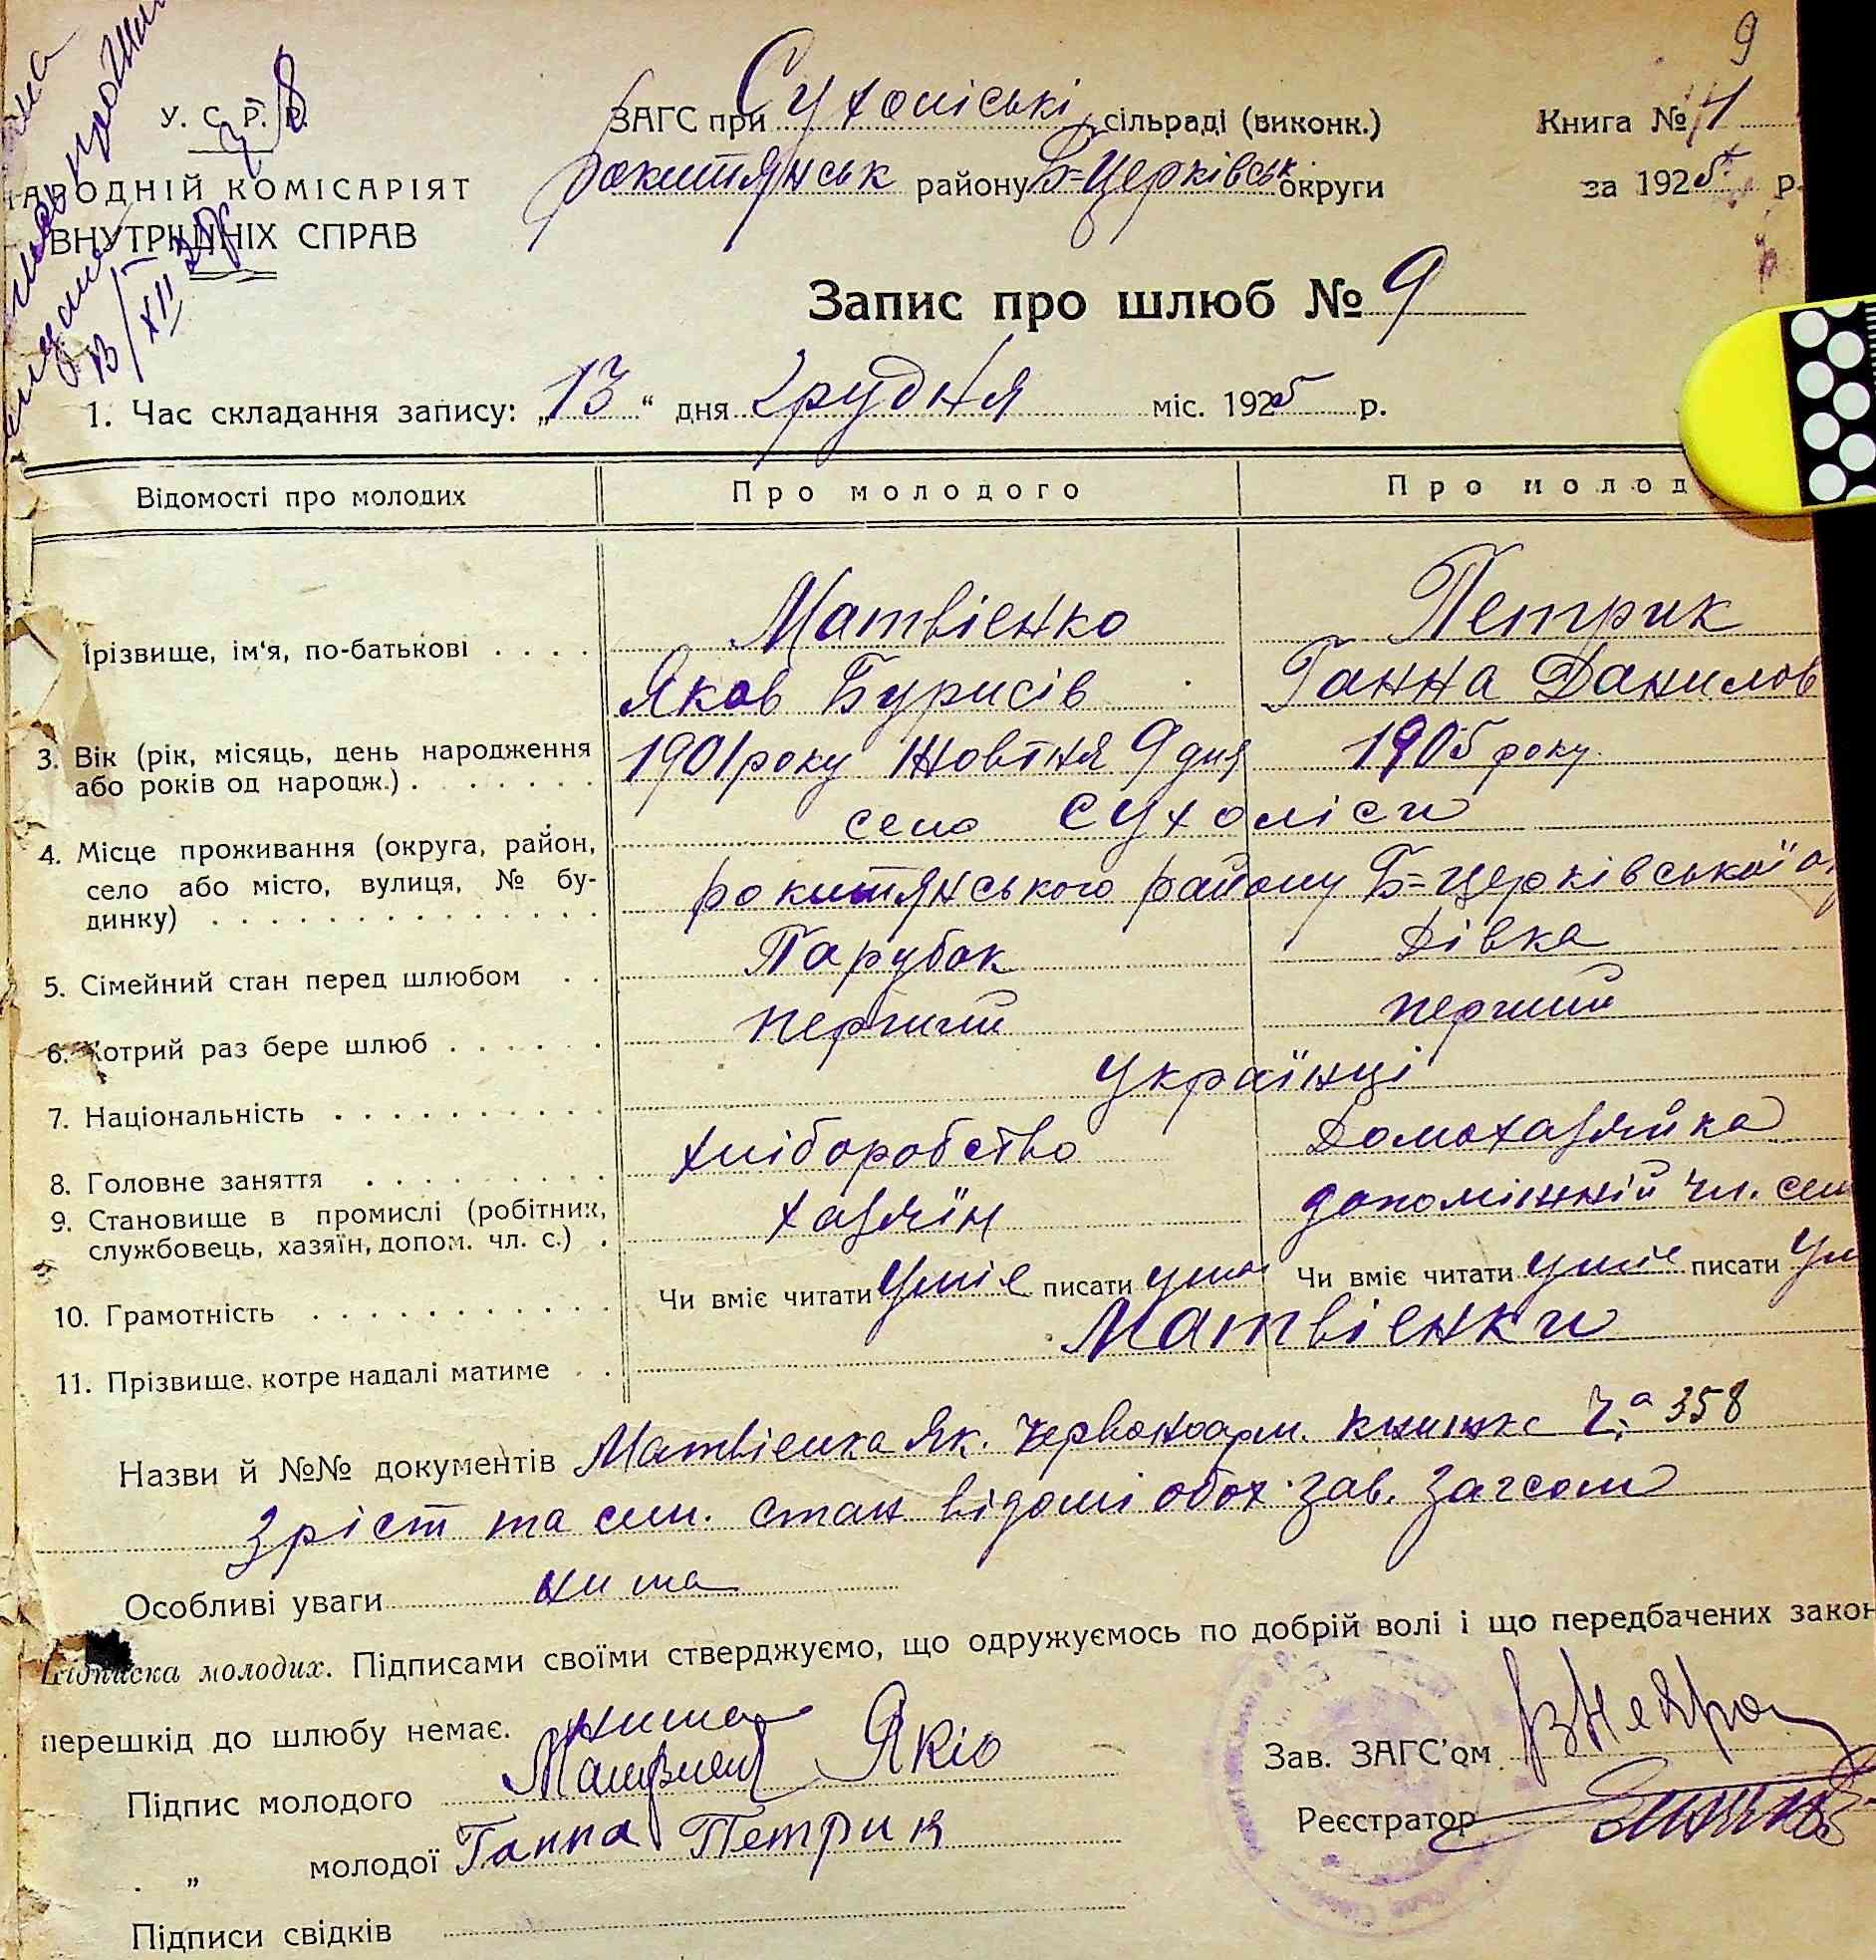 9
У. С. Р. Р.
ЗАГС при Сухоліські сільраді (виконк.)
Книга №
НАРОДНІЙ КОМІСАРІЯТ
рокитянськ району Б=Церківськ округи
за 1925 р.
ВНУТРІШНІХ СПРАВ
Запис про шлюб № 9
1. Час складання запису: „13“ дня грудня міс. 1925 р.
Відомості про молодих
Про молодого
Про молод
Матвієнко
Петрик
Прізвище, ім'я, по-батькові
Яков Бурисів
Ганна Данилов
3. Вік (рік, місяць, день народження
1901 року Жовтня 9 дня
1905 року
або років од народж.)
село Сухоліси
4. Місце проживання (округа, район,
село або місто, вулиця, № бу-
рокитянського району Б=Церківської о
динку)
Парубок
Дівка
5. Сімейний стан перед шлюбом
перший
перший
6. Котрий раз бере шлюб
Українці
7. Національність
хліборобство
Домохазяйка
8. Головне заняття
9. Становище в промислі (робітник,
хазяїн
допоміжній чл. сем
службовець, хазяїн, допом. чл. с.)
Чи вміє читати Уміє писати уміє
Чи вміє читати уміє писати Ум
10. Грамотність
Матвієнки
11. Прізвище, котре надалі матиме
Назви й №№ документів Матвієнка Як. Червоноарм. книжка 358
Зріст та сем. стан відомі обох зав. Загсом
Особливі уваги нима
Підписка молодих. Підписами своїми стверджуємо, що одружуємось по добрій волі і що передбачених закон
перешкід до шлюбу немає. нима
Зав. ЗАГС'ом
Підпис молодого Якіо
Реєстратор
„ молодої Ганна Петрик
Підписи свідків